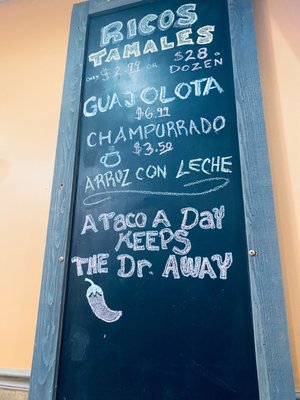 RICOS
TAMALES
ONLY $2.99 OR $28 a DOZEN
GUAJOLOTA
$6.99
CHAMPURRADO
$3.50
ARROZ CON LECHE
A TACO A DAY
KEEPS
THE Dr. AWAY